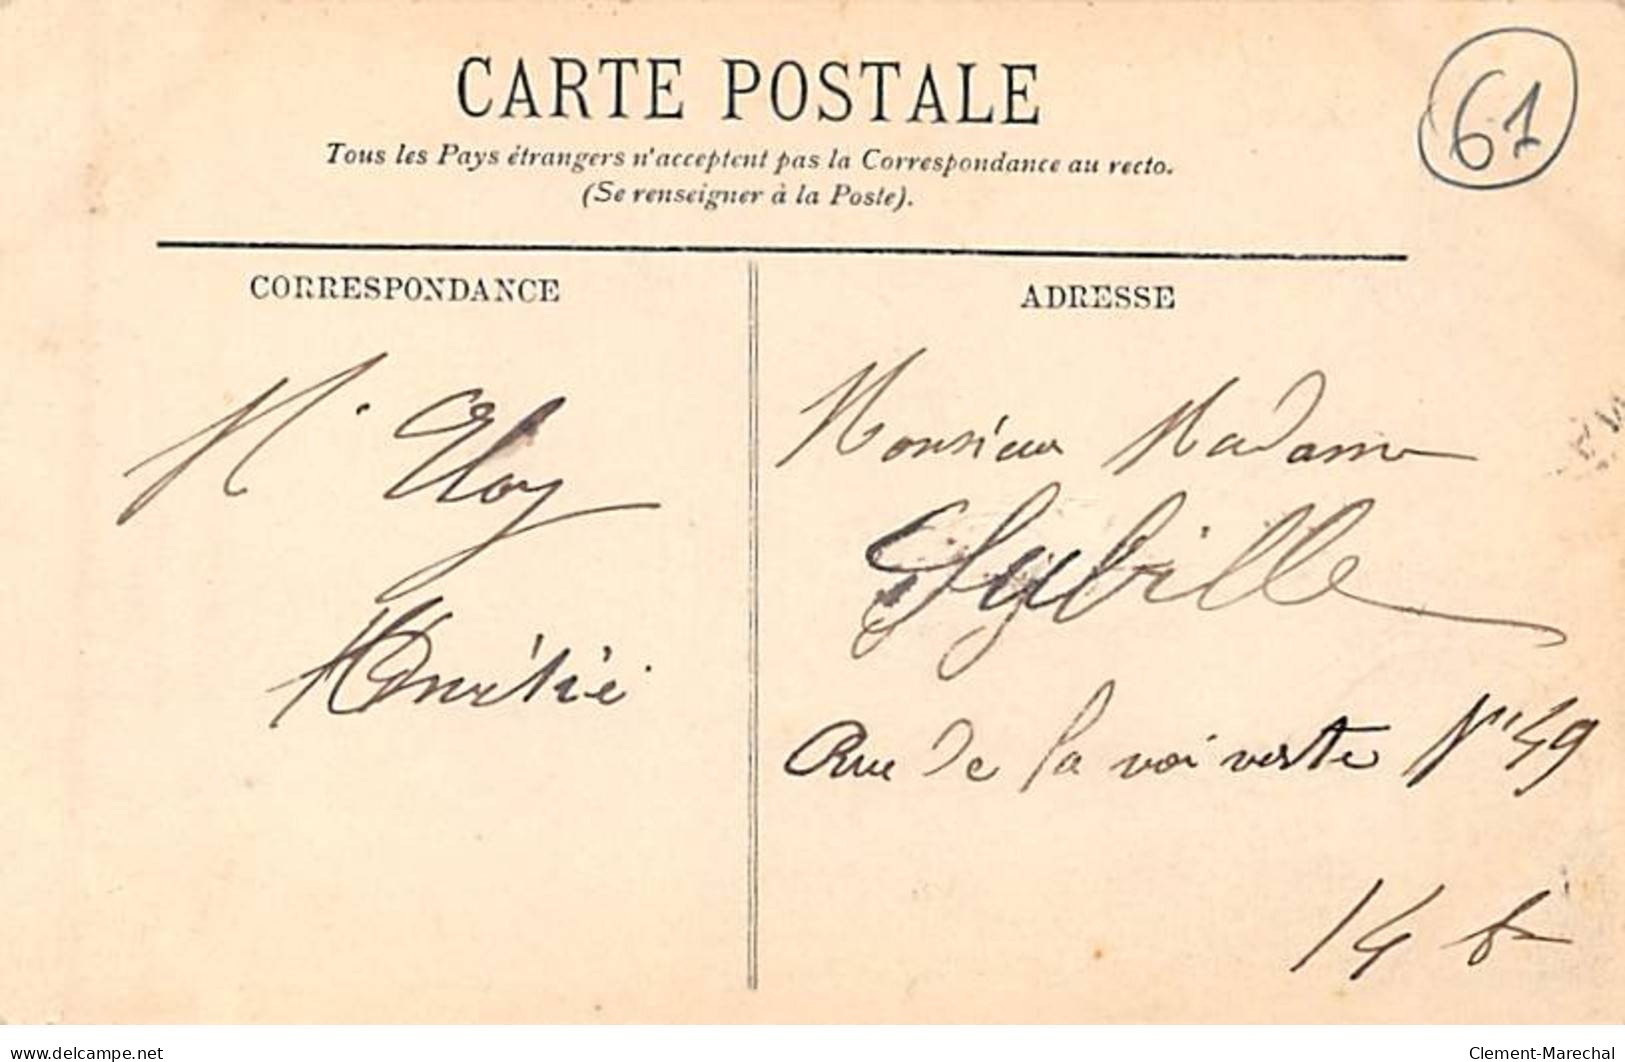 CARTE POSTALE
61
Tous les Pays étrangers n'acceptent pas la Correspondance au recto.
(Se renseigner à la Poste).
CORRESPONDANCE
ADRESSE
Amitié
Monsieur Madame
Sybille
Rue de la voi verte N° 49
14
delcampe.net
Clement-Marechal